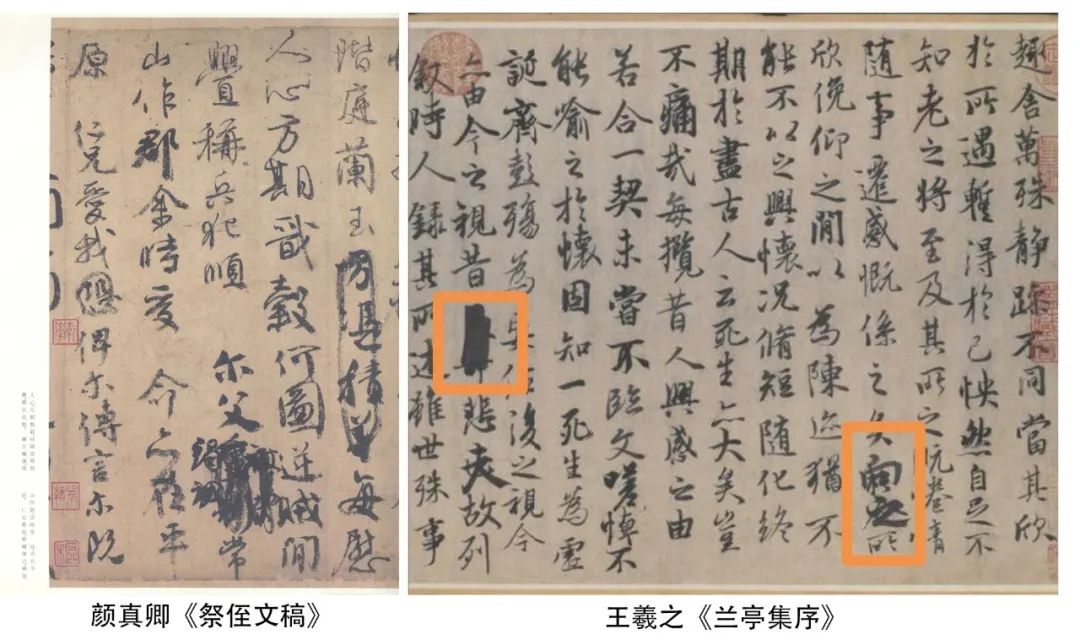 階庭蘭玉每慰
人心方期戩穀何圖逆賊閒
舋稱兵犯順尔父常
山作郡余時受命亦在平
原仁兄愛我俾尔傳言尔既
颜真卿《祭侄文稿》
趣舍萬殊靜躁不同當其欣
於所遇暫得於己怏然自足不
知老之將至及其所之既惓情
隨事遷感慨係之矣向之所
欣俛仰之閒以為陳迹猶不
能不以之興懷況脩短隨化終
期於盡古人云死生亦大矣豈
不痛哉每攬昔人興感之由
若合一契未嘗不臨文嗟悼不
能喻之於懷固知一死生為虛
誕齊彭殤為妄作後之視今
亦由今之視昔悲夫故列
敘時人錄其所述雖世殊事
王羲之《兰亭集序》